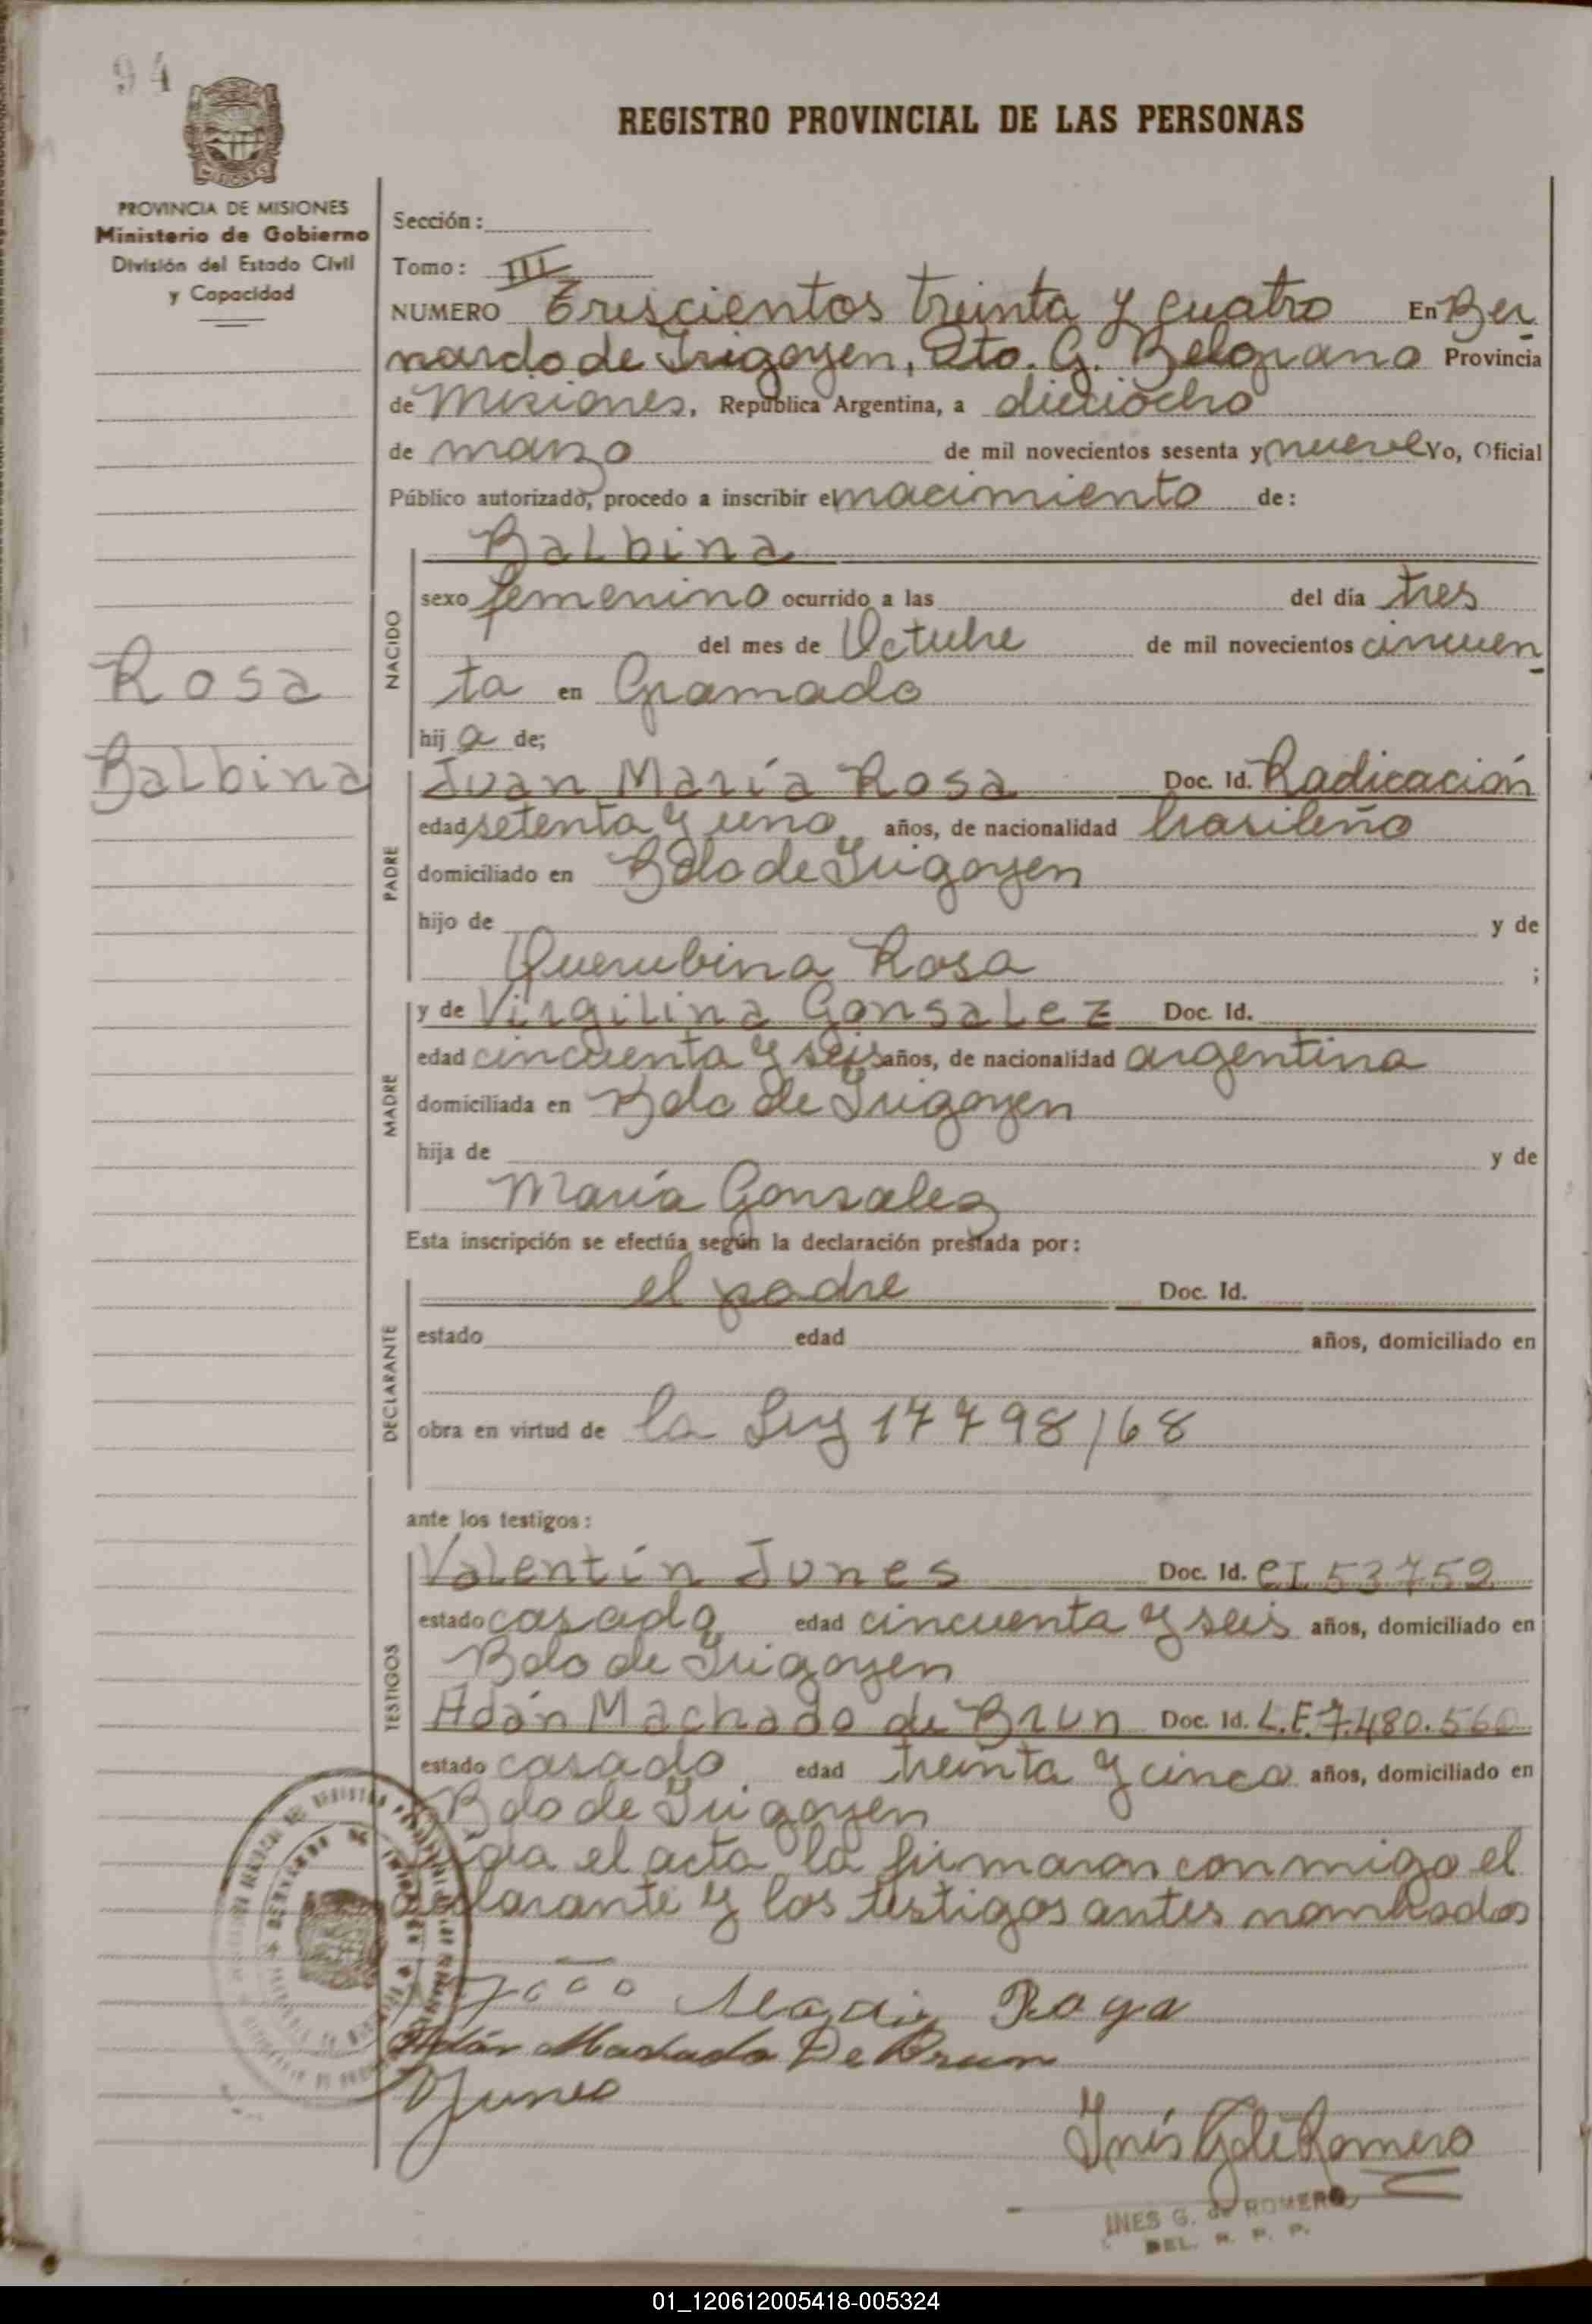 94
REGISTRO PROVINCIAL DE LAS PERSONAS
MISIONES
PROVINCIA DE MISIONES
Ministerio de Gobierno
División del Estado Civil
y Capacidad
Rosa
Balbina
Sección:
Tomo: III
NUMERO Trescientos treinta y cuatro En Ber
nardo de Irigoyen, Dto. G. Belgrano Provincia
de Misiones, República Argentina, a dieciocho
de marzo de mil novecientos sesenta y nueve Yo, Oficial
Público autorizado, procedo a inscribir el nacimiento de:
Balbina
NACIDO
sexo femenino ocurrido a las del día tres
del mes de Octubre de mil novecientos cincuen
ta en Gramado
hij a de;
PADRE
Juan María Rosa Doc. Id. Radicación
edad setenta y uno años, de nacionalidad brasileño
domiciliado en Bdo de Irigoyen
hijo de y de
Querubina Rosa ;
MADRE
y de Virgilina Gonsalez Doc. Id.
edad cincuenta y seis años, de nacionalidad argentina
domiciliada en Bdo de Irigoyen
hija de y de
María Gonsalez
Esta inscripción se efectúa según la declaración prestada por:
DECLARANTE
el padre Doc. Id.
estado edad años, domiciliado en
obra en virtud de la Ley 17798/68
ante los testigos:
TESTIGOS
Valentín Junes Doc. Id. CI 53759
estado casado edad cincuenta y seis años, domiciliado en
Bdo de Irigoyen
Adán Machado de Brun Doc. Id. L.E. 7.480.560
estado casado edad treinta y cinco años, domiciliado en
Bdo de Irigoyen
el acta la firmaron conmigo el
declarante y los testigos antes nombrados
Roga
Adán Machado De Brum
Junes
Inés G de Romero
INES G. de ROMERO
DEL. R. P. P.
01_120612005418-005324